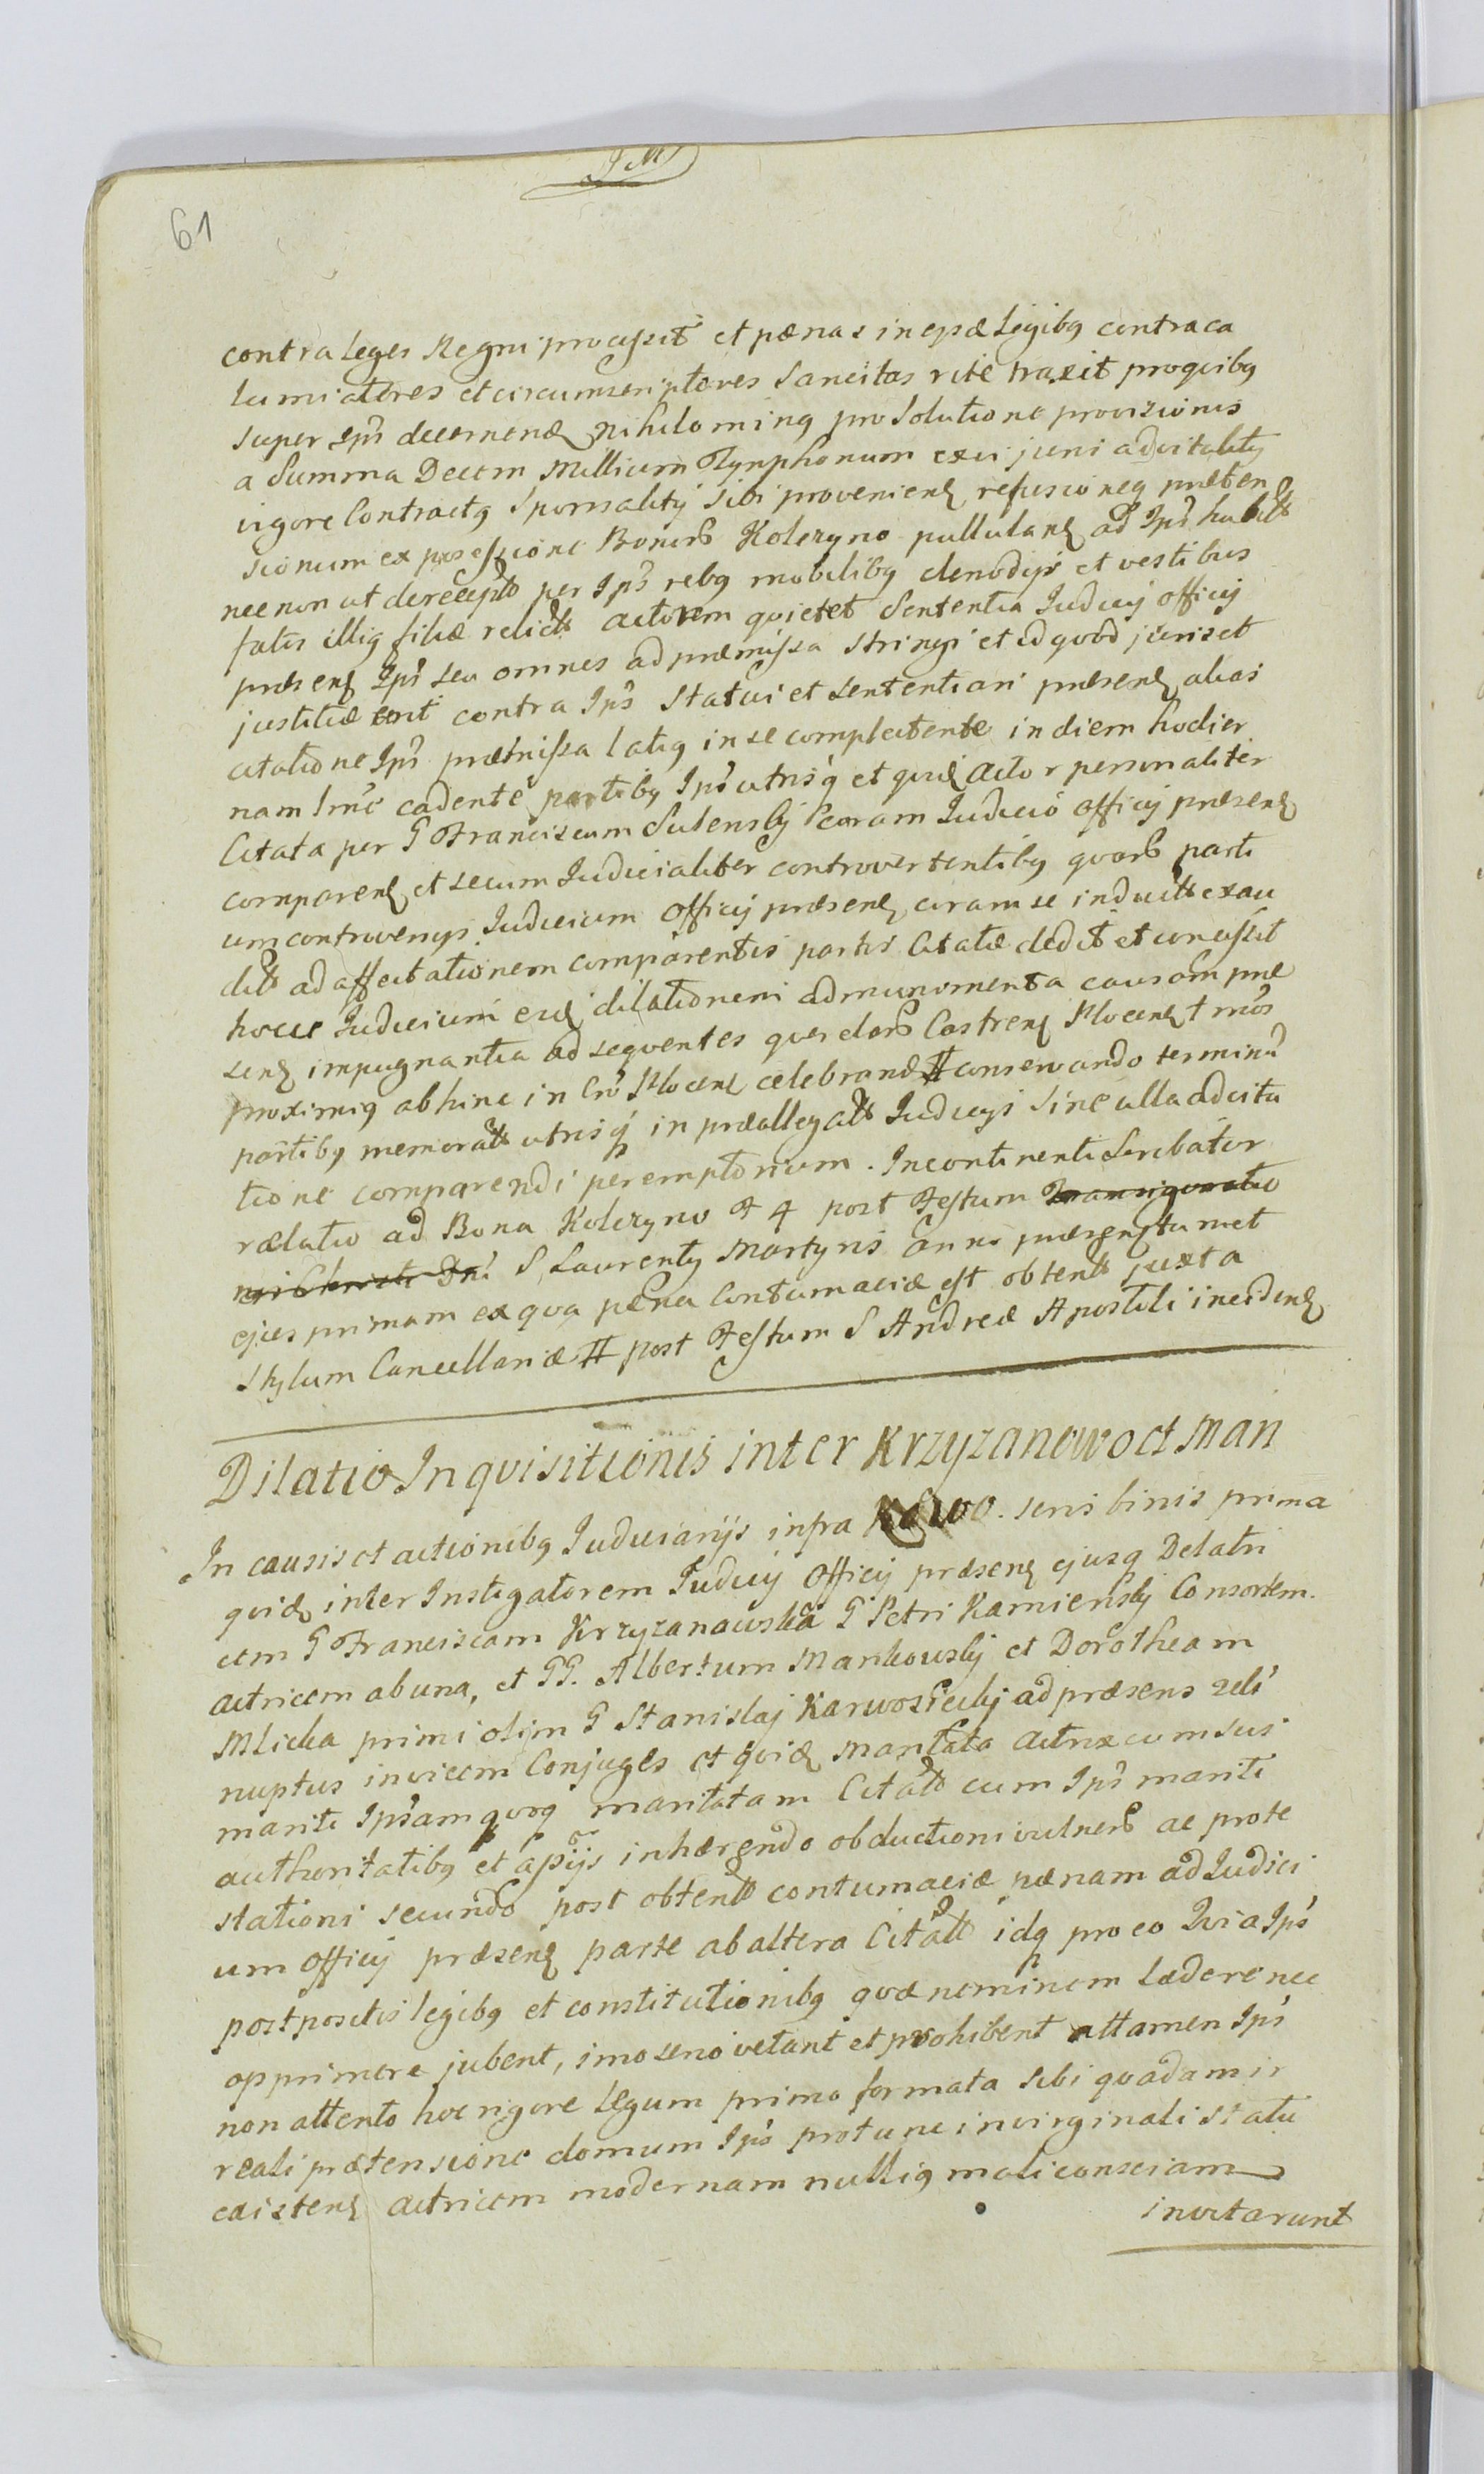 JM
61
contra Leges Regni processit et pænas in ejsd Legibq contra ca
lumiatores et circumscriptores Sancitas rite traxit pro quibq
super Ips decernend nihilominq pro Solutione provizionis
a Summa Decem Millium Tynphonum exvi juris advitalitq
vigore Contractq Sponsalitij Sibi provenienz refusioneq præten
sionum ex possessione Bonorb Kolczyno pullulanz ad Ips habitt
nec non ut de receptt per Ips rebq mobilibq clenodijs et vestibus
fatis illiq filiæ relictt actorem quietet Sententia Judicij officij
præsenz Ips seu omnes ad præmissa Stringi et id quod juris et
justitiæ erit contra Ips Statui et sententiari præsenz alias
citatione Ips præmissa latiq in se complectente in diem hodier
nam lmc cadente partibq Ips utrisq et quid Actor personaliter
Citata per G Franciscum Sulensky coram Judicio officij præsenz
comparenz et secum Judicialiter controvertentibq quorb parti
um controversijs Judicium officij præsenz coram se inductt exau
ditt ad affectationem comparentis partis Citatæ dedit et concessit
hocce Judicium eid dilationem ad munimenta causam præ
senz impugnantia ad sequentes querelarb Castrenz Plocenz tmos
proximiq abhinc in Cro Plocenz celebrand tt conservando terminu
partibq memoratt utrisq in præallegatt Judicijs Sine ulla adcita
tione comparendi peremptorium. Incontinenti Scribatur
rælatio ad Bona Kolczyno F 4 post Festum Transiguratio
nis Christi Dni S Laurentij Martyris anni præsenz tumet
ejus primam ex qua pæna Contumaciæ est obtentt juxta
Stylum Cancellariæ tt post Festum S Andreæ Apostoli incidenz
Dilatio Inquisitionis inter Krzyzanowo et Man
kowo.
In causis et actionibq Judiciarijs infra seris binis prima
quid inter Instigatorem Judicij Officij præsenz ejusq Delatri
cem G Franciscam Krzyzanawska G Petri Kamiensky Consortem.
actricem ab una, et GG. Albertum Mankowsky et Dorotheam
Mlicka primi olim G Stanislaj Karwosiecky ad præsens 2di
nuptus invicem Conjuges et quid Maritata Actrix cum sui
mariti Ipsam quoq maritatam Citatt cum Ips mariti
authoritatibq et aspijs inhærendo obductioni vulnerb ac prote
stationi secundo post obtentt contumaciæ pænam ad Judici
um officij præsenz parte ab altera Citatt idq pro eo Quia Ips
postpositis legibq et constitutionibq quæ neminem Lædere nec
opprimere jubent, imo seno vetant et prohibent attamen Ips
non attento hoc rigore Legum primo formata sibi quadam ir
reali prætensione domum Ips protunc in virginali statu
existenz actricem modernam nulliq mali consciam
invitarunt